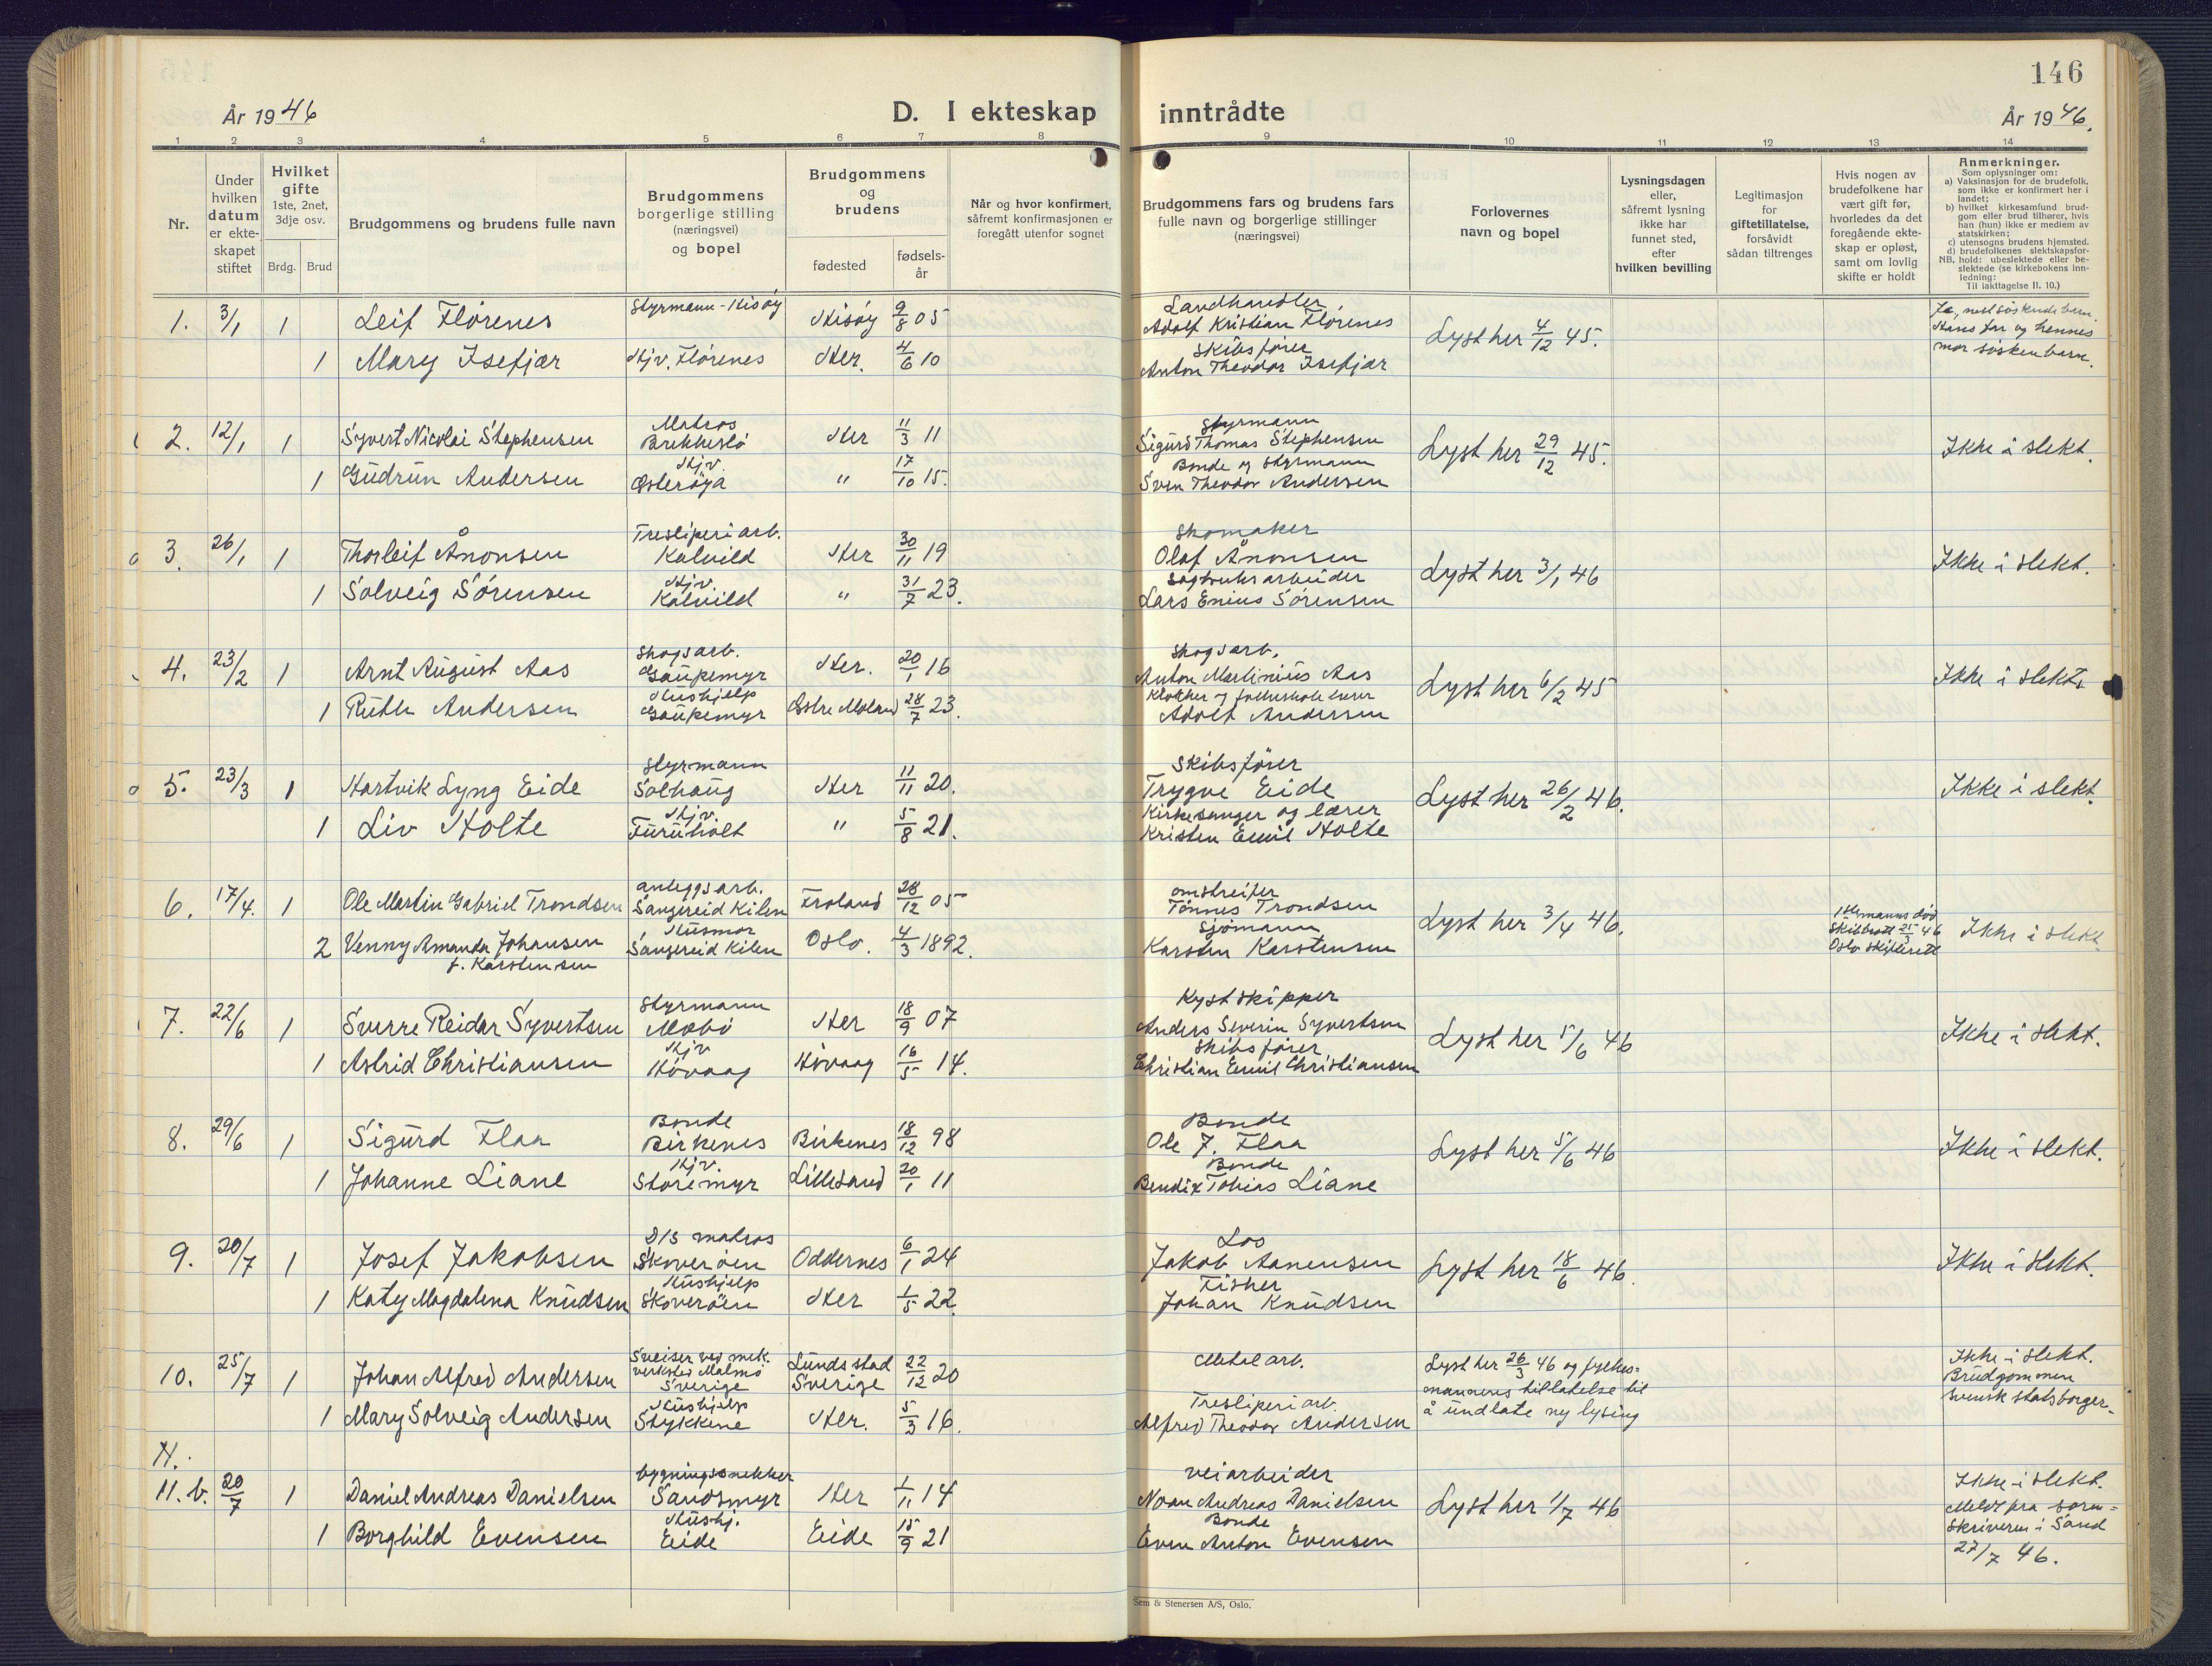 146
År 1946
D. I ekteskap inntrådte
År 1946.
1 2 3 4 5 6 7 8 9 10 11 12 13 14
Nr.
Under hvilken datum er ekte-skapet stiftet
Hvilket gifte 1ste, 2net, 3dje osv.
Brdg. Brud
Brudgommens og brudens fulle navn
Brudgommens borgerlige stilling (næringsvei) og bopel
Brudgommens og brudens
fødested
fødsels-år
Når og hvor konfirmert, såfremt konfirmasjonen er foregått utenfor sognet
Brudgommens fars og brudens fars fulle navn og borgerlige stillinger (næringsvei)
Forlovernes navn og bopel
Lysningsdagen eller, såfremt lysning ikke har funnet sted, efter hvilken bevilling
Legitimasjon for giftetillatelse, forsåvidt sådan tiltrenges
Hvis nogen av brudefolkene har vært gift før, hvorledes da det foregående ekte-skap er opløst, samt om lovlig skifte er holdt
Anmerkninger.
Som oplysninger om:
a) Vaksinasjon for de brudefolk, som ikke er konfirmert her i landet;
b) hvilket kirkesamfund brud-gom eller brud tilhører, hvis han (hun) ikke er medlem av statskirken;
c) utensogns brudens hjemsted.
d) brudefolkenes slektskapsfor-hold: ubeslektede eller be-slektede (se kirkebokens inn-ledning:
NB.
Til iakttagelse II. 10.)
1. 3/1 1 Leif Florenes Styrmann - Kisøy Kisøy 9/8 05 Landhandler Adolf Kristian Florenes Lyst her 4/12 45. Ja, nestsøskendebarn.
1 Mary Isefjær Hjv. Florenes Her. 4/6 10 Skibsfører Anton Theodor Isefjær Hans far og hennes mor søskenbarn.
2. 12/1 1 Syvert Nicolai Stephensen Matros Brekkestø Her 11/3 11 Styrmann Sigurd Thomas Stephensen Lyst her 29/12 45. Ikke i slekt.
1 Gudrun Andersen Hjv. Osterøya " 17/10 15. Bonde og Styrmann Sven Theodor Andersen
3. 26/1 1 Thorleif Ånonsen Tresliperiarb. Kalvild Her 30/11 19 Skomaker Olaf Ånonsen Lyst her 3/1 46 Ikke i slekt.
1 Solveig Sørensen Hjv. Kalvild " 31/7 23. Sagbruksarbeider Lars Enius Sørensen
4. 23/2 1 Arnt August Aas Skogsarb. Gaupemyr Her. 20/1 16 Skogsarb. Anton Martinius Aas Lyst her 6/2 45 Ikke i slekt.
1 Ruth Andersen Hushjelp Gaupemyr Østre Moland 28/7 23. Klokker og folkeskolelærer Adolf Andersen
5. 23/3 1 Hartvik Lyng Eide Styrmann Solhaug Her 11/11 20. Skibsfører Trygve Eide Lyst her 26/2 46. Ikke i slekt.
1 Liv Holte Hjv. Furuholt " 5/8 21. Kirkesanger og lærer Kristen Emil Holte
6. 17/4. 1 Ole Martin Gabriel Trondsen anleggsarb. Sangereid Kilen Froland 28/12 05 omstreifer Tønnes Trondsen Lyst her 3/4 46. Ikke i slekt.
2 Venny Amanda Johansen f. Karstensen Husmor Sangereid Kilen Oslo. 4/3 1892. Sjømann Karsten Karstensen
7. 22/6 1 Sverre Reidar Syvertsen Styrmann Mæbø Her 18/9 07 Kystskipper Anders Severin Syvertsen Lyst her 5/6 46 Ikke i slekt.
1 Astrid Christiansen Hjv Høvaag Høvaag 16/5 14. Skibsfører Christian Emil Christiansen
8. 29/6 1 Sigurd Flaa Bonde Birkenes Birkenes 18/12 98 Bonde Ole J. Flaa Lyst her 5/6 46 Ikke i slekt.
1 Johanne Liane Hjv. Storemyr Lillesand 20/1 11 Bonde Bendix Tobias Liane
9. 20/7 1 Josef Jakobsen D/S matros Skoverøen Oddernes 6/1 24 Los Jakob Aanensen Lyst her 18/6 46. Ikke i slekt.
1 Katy Magdalena Knudsen Hushjelp Skoverøen Her 1/5 22. Fisker Johan Knudsen
10. 25/7 1 Johan Alfred Andersen Sveiser ved mek. verksted Malmø Sverige Lunds stad Sverige 22/12 20 Metalarb. Lyst her 26/3 46 og fylkes=mannens tillatelse til å undlate ny lysing Ikke i slekt. Brudgommen svensk statsborger.
1 Mary Solveig Andersen Hushjelp Stykkene Her. 5/3 16. Tresliperiarb. Alfred Theodor Andersen
11.
11.b. 20/7 1 Daniel Andreas Danielsen bygningssnekker Sandsmyr Her 1/11 14 veiarbeider Noan Andreas Danielsen Lyst her 1/7 46 Ikke i slekt.
1 Borghild Evensen Hushj. Eide Eide 15/9 21 Bonde Even Anton Evensen Meldt fra soren=skriveren i Sand 27/7 46.
Sem & Stenersen A/S, Oslo.